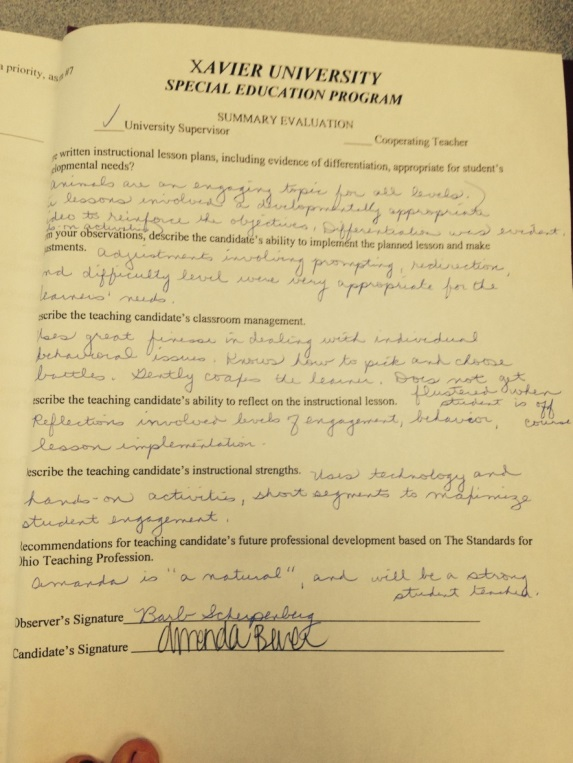 a priority, as
#7
XAVIER UNIVERSITY
SPECIAL EDUCATION PROGRAM
SUMMARY EVALUATION
✓ University Supervisor
Cooperating Teacher
written instructional lesson plans, including evidence of differentiation, appropriate for student's
elopmental needs?
animals are an engaging topic for all levels.
lessons involved a developmentally appropriate
deo to reinforce the objectives. Differentiation was evident.
your observations, describe the candidate's ability to implement the planned lesson and make
ustments. Adjustments involving prompting, redirection,
nd difficulty level were very appropriate for the
learners' needs.
escribe the teaching candidate's classroom management.
Uses great finesse in dealing with individual
behavioral issues. Knows how to pick and choose
battles. Gently coaxes the learner. Does not get
flustered when
escribe the teaching candidate's ability to reflect on the instructional lesson. student is off
course
Reflections involved levels of engagement, behavior,
lesson implementation.
escribe the teaching candidate's instructional strengths. Uses technology and
hands-on activities, short segments to maximize
student engagement.
Recommendations for teaching candidate's future professional development based on The Standards for
Ohio Teaching Profession.
Amanda is "a natural", and will be a strong
student teacher.
Observer's Signature Barb Scherpenberg
Candidate's Signature Amanda